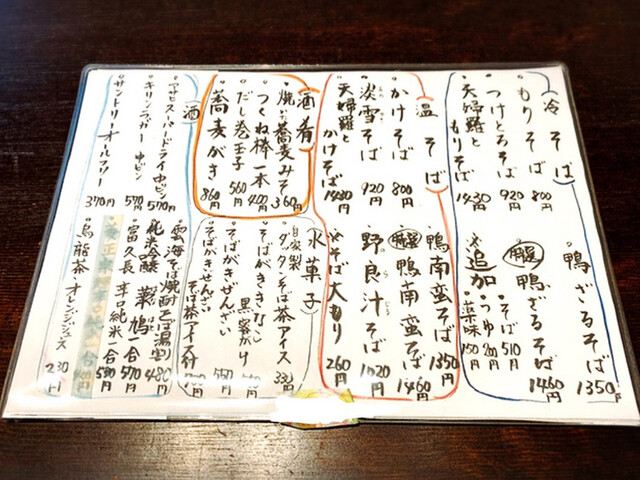 冷そば
・もりそば 800円
・つけとろそば 920円
・天婦羅ともりそば 1430円
・鴨ざるそば 1350円
・特選鴨ざるそば 1460円
追加
・そば 510円
・つゆ 200円
・薬味 150円
温そば
・かけそば 800円
・淡雪そば 920円
・天婦羅とかけそば 1430円
・鴨南蛮そば 1350円
・特選鴨南蛮そば 1460円
・野良汁そば 1020円
そば大もり 260円
酒肴
・焼き蕎麦みそ 360円
・つくね棒一本 400円
・だし巻玉子 560円
・蕎麦がき 860円
水菓子
自家製
・ダッタンそば茶アイス 330円
・そばがききなこ黒蜜がけ
・そばがきぜんざい
・そばがきぜんざいそば茶アイス付
酒
・アサヒスーパードライ中ビン 570円
・キリンラガー中ビン 570円
・サントリーオールフリー 370円
・雲海そば焼酎(そば湯割) 480円
・純米吟醸 一合 570円
・富久長 辛口純米一合 530円
・烏龍茶 オレンジジュース 230円